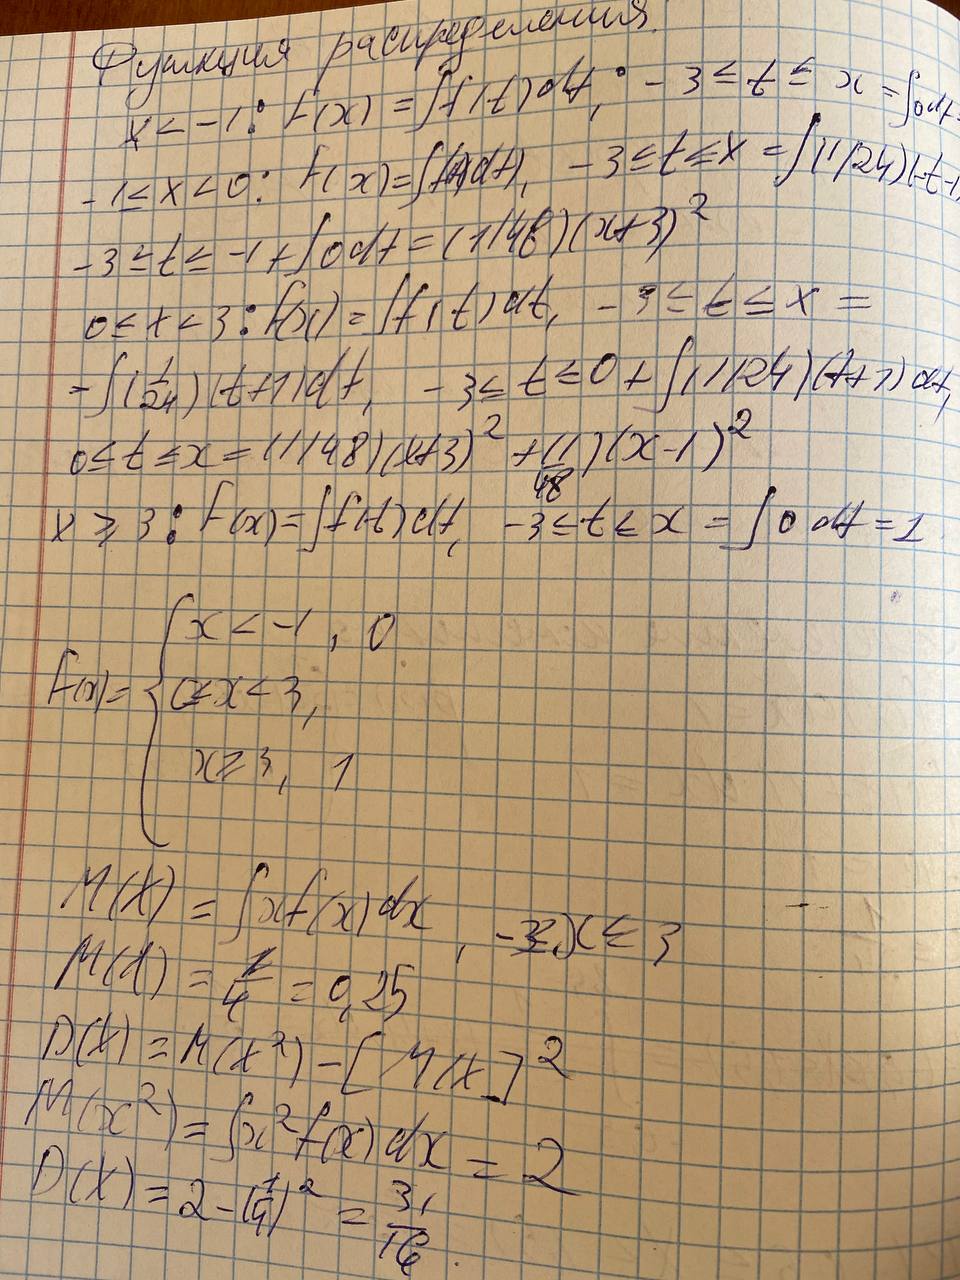 Функция распределения.
x < -1: F(x) = ∫f(t)dt, -3 ≤ t ≤ x = ∫0dt =
-1 ≤ x < 0: F(x) = ∫f(t)dt, -3 ≤ t ≤ x = ∫(1/24)(-t-1)
-3 ≤ t ≤ -1 + ∫0dt = (1/48)(x+3)²
0 ≤ x < 3: F(x) = ∫f(t)dt, -3 ≤ t ≤ x =
= ∫(1/24)(t+1)dt, -3 ≤ t ≤ 0 + ∫(1/24)(t+1)dt,
0 ≤ t ≤ x = (1/48)(x+3)² + (1/48)(x-1)²
x ⩾ 3: F(x) = ∫f(t)dt, -3 ≤ t ≤ x = ∫0dt = 1
F(x) = { x < -1, 0
0 ≤ x < 3,
x ≥ 3, 1
M(X) = ∫xf(x)dx, -3 ≤ x ≤ 3
M(X) = 1/4 = 0,25
D(X) = M(X²) - [M(X]²
M(x²) = ∫x²f(x)dx = 2
D(X) = 2 - (1/4)² = 31/16